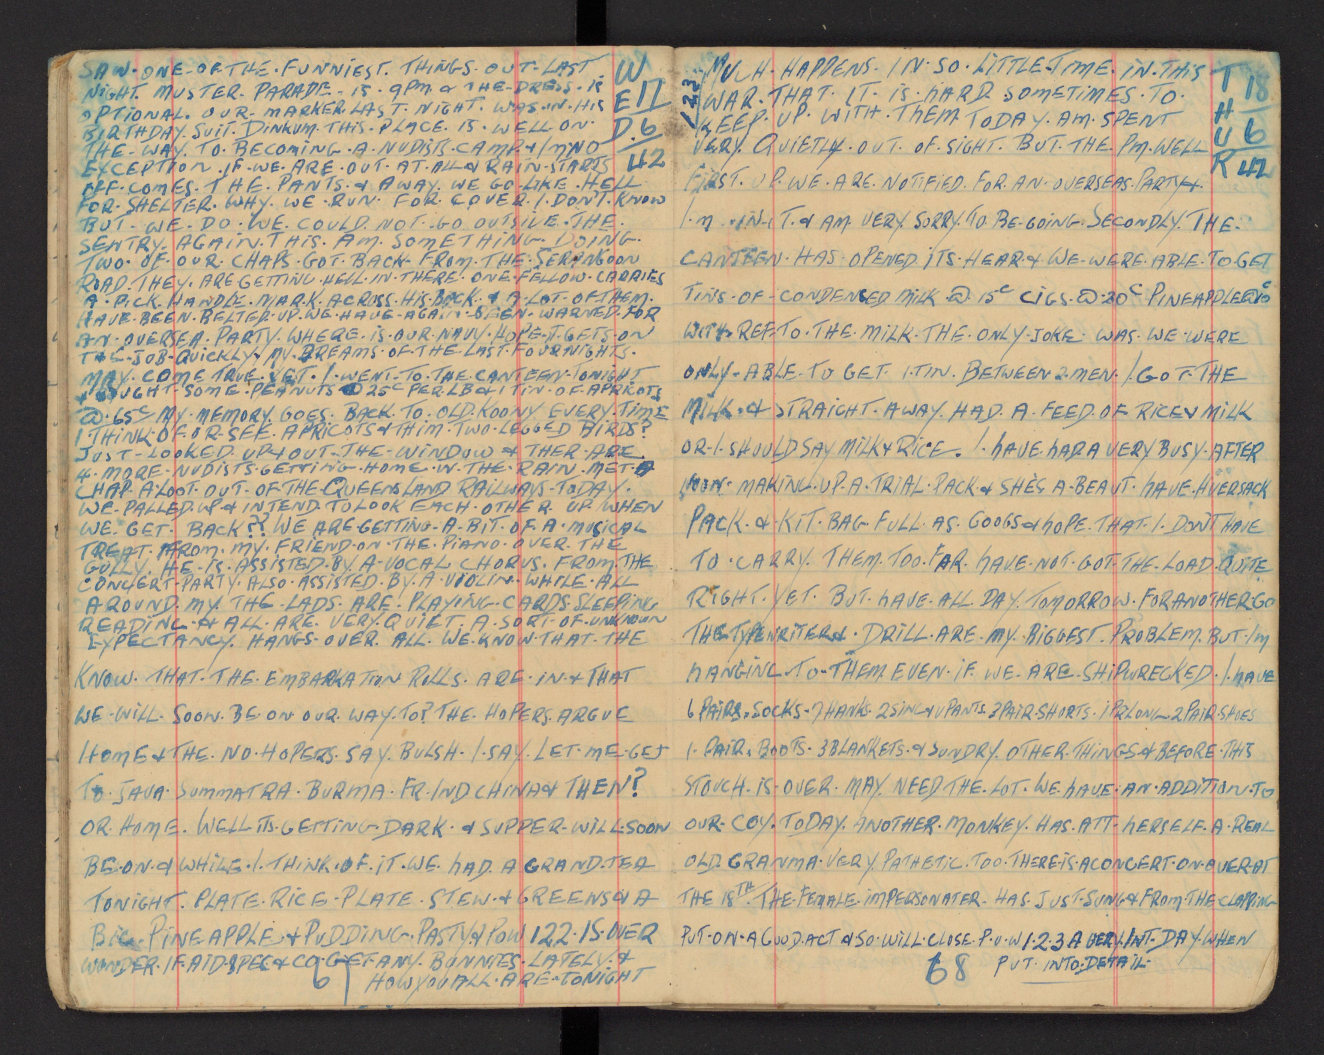 SAW. ONE. OF THE. FUNNIEST. THINGS. OUT. LAST
NIGHT. MUSTER. PARADE. IS. 9PM & THE. DRESS. IS
OPTIONAL. OUR. MARKER LAST. NIGHT. WAS. IN. HIS
BIRTHDAY. SUIT. DINKUM. THIS. PLACE. IS. WELL ON.
THE. WAY. TO. BECOMING. A. NUDIST. CAMP & I'M NO
EXCEPTION. IF. WE. ARE. OUT. AT. ALL & RAIN. STARTS
OFF. COMES. THE. PANTS. & AWAY. WE. GO. LIKE. HELL
FOR. SHELTER. WHY. WE. RUN. FOR. COVER. I. DON'T. KNOW
BUT. WE. DO. WE. COULD. NOT. GO. OUTSIDE. THE.
SENTRY. AGAIN. THIS. AM. SOMETHING. DOING.
TWO. OF. OUR. CHAPS. GOT. BACK. FROM. THE. SERANGOON
ROAD. THEY. ARE GETTING. HELL. IN. THERE. ONE. FELLOW. CARRIES
A. PICK. HANDLE. MARK. ACROSS. HIS. BACK. & A. LOT. OF THEM.
HAVE. BEEN. BELTED. UP. WE. HAVE. AGAIN. BEEN. WARNED. FOR
AN. OVERSEA. PARTY. WHERE. IS. OUR. NAVY. HOPE. IT. GETS. ON
THE. JOB. QUICKLY & MY. DREAMS. OF. THE. LAST. FOUR NIGHTS.
MAY. COME TRUE. YET. I. WENT. TO. THE. CANTEEN. TONIGHT
& BOUGHT. SOME. PEANUTS @ 25c PER LB & 1 TIN. OF APRICOTS
@. 65c MY. MEMORY. GOES. BACK. TO. OLD. KOONY EVERY. TIME
I. THINK. OF. OR. SEE. APRICOTS & THIM. TWO. LEGGED. BIRDS?
JUST. LOOKED. UP & OUT. THE. WINDOW & THER. ARE
4. MORE. NUDISTS. GETTING. HOME. IN. THE. RAIN. MET. A
CHAP. A. LOOT. OUT. OF THE. QUEENSLAND RAILWAYS. TODAY.
WE. PALLED. UP & INTEND. TO LOOK. EACH. OTHER. UP. WHEN
WE. GET. BACK?? WE ARE. GETTING. A. BIT. OF. A. MUSICAL
TREAT. FROM. MY. FRIEND. ON. THE. PIANO. OVER. THE
GULLY. HE. IS. ASSISTED. BY. A. VOCAL. CHORUS. FROM. THE
CONCERT. PARTY. ALSO. ASSISTED. BY. A. VIOLIN. WHILE. ALL
AROUND. MY. THE. LADS. ARE. PLAYING. CARDS. SLEEPING
READING. & ALL. ARE. VERY. QUIET. A. SORT. OF. UNKNOWN
EXPECTANCY. HANGS. OVER. ALL. WE. KNOW. THAT. THE
KNOW. THAT. THE. EMBARKATION ROLLS. ARE. IN. & THAT
WE. WILL. SOON. BE. ON. OUR. WAY. TO? THE. HOPERS. ARGUE
HOME & THE. NO. HOPERS. SAY. BULSH. I. SAY. LET. ME. GET
TO. JAVA. SUMMATRA. BURMA. FR. IND CHINA & THEN!?
OR. HOME. WELL ITS. GETTING. DARK. & SUPPER. WILL. SOON
BE. ON. & WHILE. I. THINK. OF. IT. WE. HAD. A GRAND. TEA
TONIGHT. PLATE. RICE. PLATE. STEW. & GREENS & A
BIG. PINEAPPLE. & PUDDING. PASTY & POW 122. IS. OVER
WONDER. IF AID SPEC & CO GET ANY. BUNNIES. LATELY. &
HOW YOU ALL. ARE. TONIGHT
67
W
E 17
D. 6
42
123. MUCH. HAPPENS. IN. SO. LITTLE. TIME. IN. THIS
WAR. THAT. IT. IS. HARD SOMETIMES. TO.
KEEP. UP. WITH. THEM. TODAY. AM. SPENT
VERY. QUIETLY. OUT. OF. SIGHT. BUT. THE. PM. WELL
FIRST. UP. WE. ARE. NOTIFIED. FOR. AN. OVERSEAS. PARTY &
I'M. IN. IT. & AM VERY. SORRY. TO. BE. GOING. SECONDLY. THE.
CANTEEN. HAS. OPENED. ITS. HEAR & WE. WERE. ABLE. TO. GET
TINS. OF. CONDENSED MILK @. 15c CIGS. @. 20c PINEAPPLE @
WITH. REF. TO. THE. MILK. THE. ONLY. JOKE. WAS. WE. WERE
ONLY. ABLE. TO GET. 1. TIN. BETWEEN 2 MEN. I. GOT. THE
MILK. & STRAIGHT. AWAY. HAD. A. FEED. OF RICE & MILK
OR. I. SHOULD SAY MILK & RICE. I. HAVE HAD A VERY BUSY. AFTER
NOON. MAKING. UP. A. TRIAL. PACK & SHE'S A. BEAUT. HAVE. HVERSACK
PACK. & KIT. BAG. FULL. AS. GOOGS & HOPE. THAT. I. DON'T HAVE
TO. CARRY. THEM. TOO. FAR. HAVE. NOT. GOT. THE. LOAD. QUITE
RIGHT. YET. BUT. HAVE. ALL. DAY. TOMORROW. FOR ANOTHER GO
THE TYPEWRITER & DRILL. ARE. MY. BIGGEST. PROBLEM. BUT. I'M
HANGING. TO. THEM. EVEN. IF. WE. ARE. SHIPWRECKED. I. HAVE
6 PAIRS. SOCKS. 7 HANKS. 2 SING & U PANTS. 3 PAIR. SHORTS. 1 PR LONG. 2 PAIR. SHOES
1. PAIR. BOOTS. 3 BLANKETS. & SUNDRY. OTHER. THINGS & BEFORE. THIS
STOUCH. IS. OVER. MAY. NEED. THE. LOT. WE. HAVE. AN. ADDITION. TO
OUR. COY. TODAY. ANOTHER. MONKEY. HAS. ATT. HERSELF. A. REAL
OLD. GRANMA. VERY. PATHETIC. TOO. THERE. IS. A CONCERT. ON. OVER. AT
THE 18TH. THE. FEMALE. IMPERSONATER. HAS. JUST. SUNG & FROM. THE CLAPPING
PUT. ON. A GOOD. ACT & SO. WILL. CLOSE. P.O.W 1.2.3 A VERY. INT. DAY. WHEN
PUT INTO. DETAIL
68
T 18
H
U 6
R 42